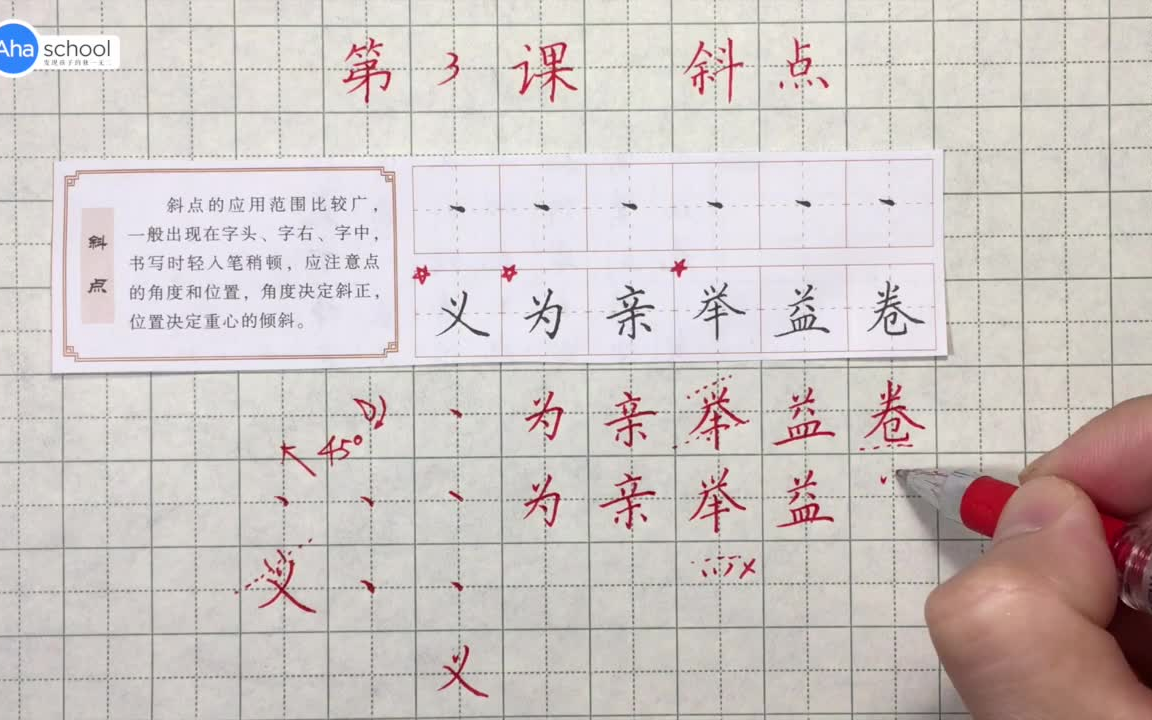 Aha school
发现孩子的独一无二
第 3 课 斜 点
斜点
斜点的应用范围比较广，
一般出现在字头、字右、字中，
书写时轻入笔稍顿，应注意点
的角度和位置，角度决定斜正，
位置决定重心的倾斜。
义 为 亲 举 益 卷
45°
为 亲 举 益 卷
为 亲 举 益
义
义